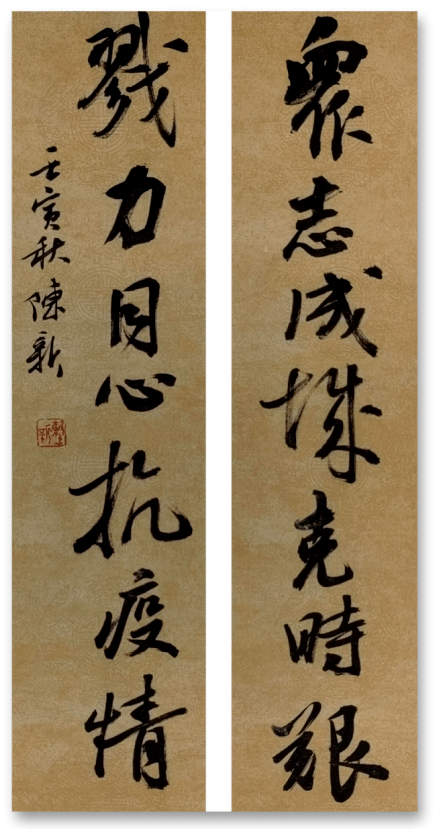 眾志成城克時艱
戮力同心抗疫情
壬寅秋陳新